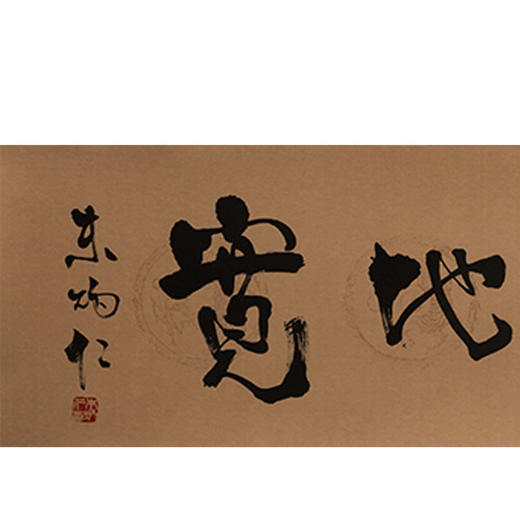 地寬
朱炳仁